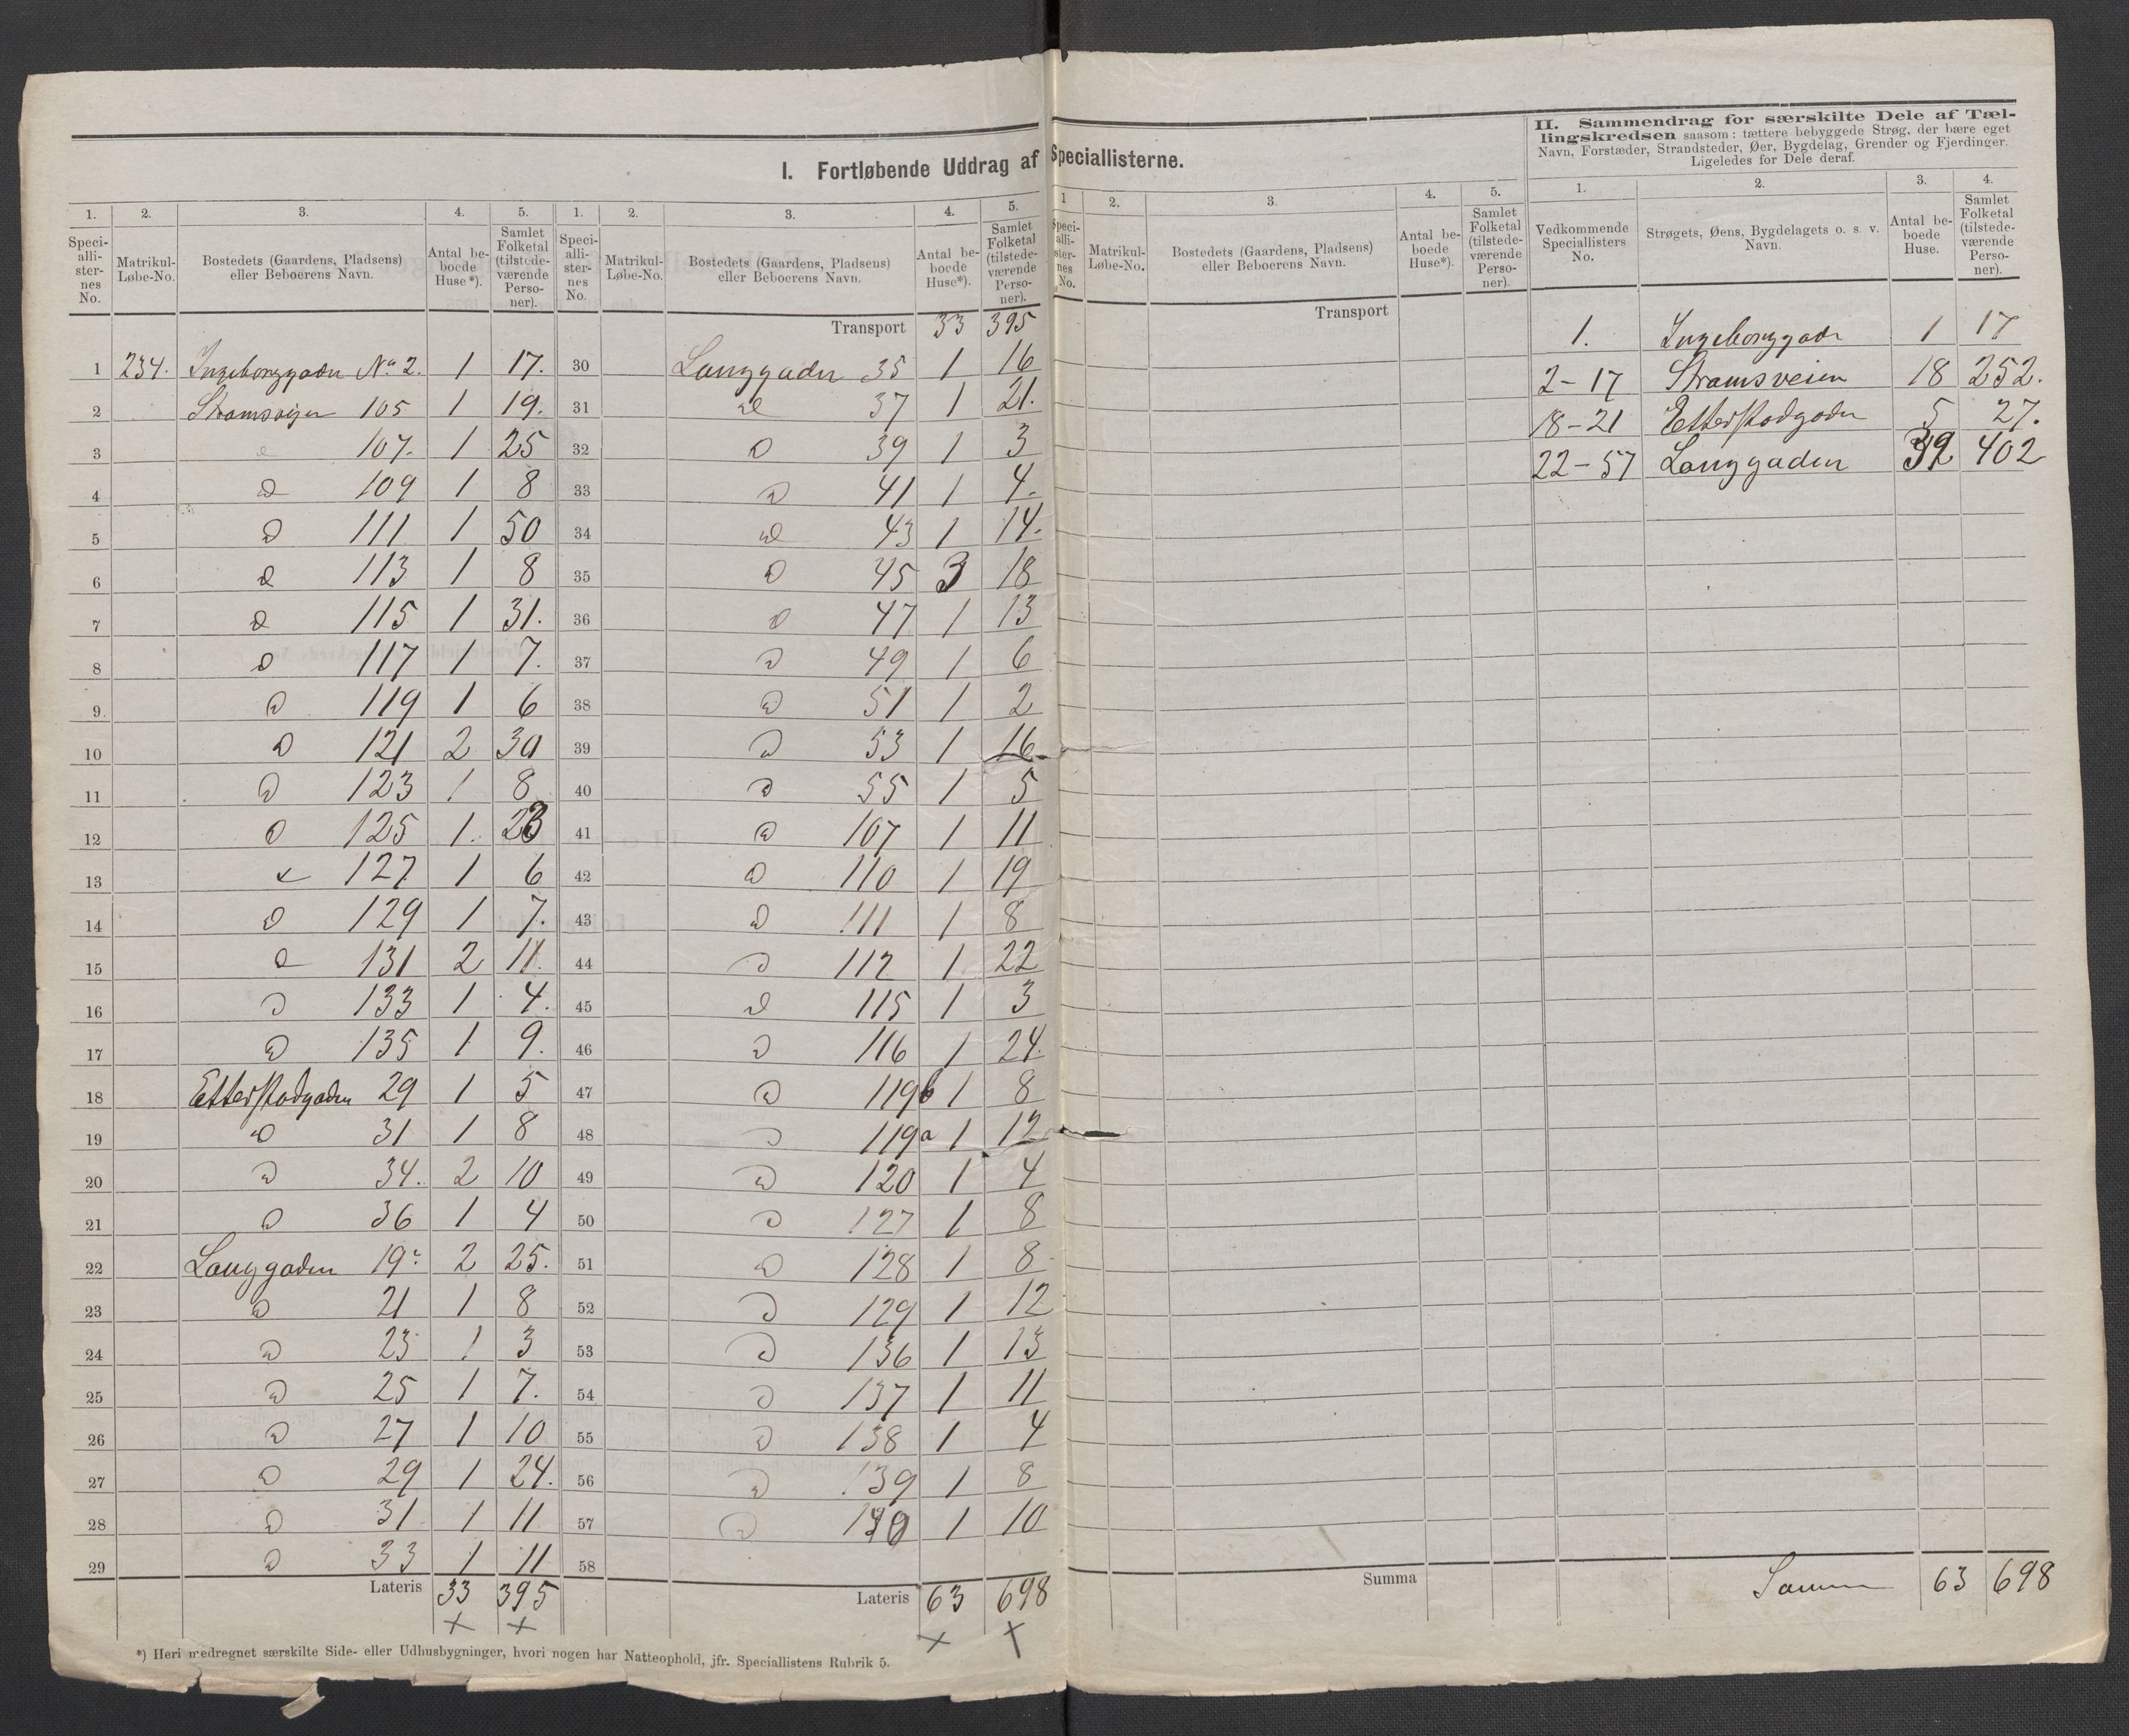 I. Fortløbende Uddrag af Speciallisterne.
1. 2. 3. 4. 5.
Speciallisternes No. Matrikul-Løbe-No. Bostedets (Gaardens, Pladsens) eller Beboerens Navn. Antal beboede Huse*). Samlet Folketal (tilstedeværende Personer).
1 234. Ingeborggaden No 2. 1 17.
2 Strømsveien 105 1 19.
3 107. 1 25
4 D 109 1 8
5 D 111 1 50
6 D 113 1 8
7 D 115 1 31.
8 D 117 1 7.
9. D 119 1 6
10 D 121 2 30
11 D 123 1 8
12 D 125 1. 23
13 127 1 6
14 D 129 1 7.
15 D 131 2 11.
16 D 133 1 4.
17 D 135 1 9.
18 Etterstadgaden 29 1 5
19 D 31 1 8
20 D 34. 2 10
21 D 36 1 4
22 Langgaden 19 2 25.
23 D 21 1 8
24 D 23 1 3
25 D 25 1 7.
26 D 27 1 10
27 D 29 1 24.
28 D 31 1 11
29 D 33 1 11
Lateris 33 395
1. 2. 3. 4. 5.
Speciallisternes No. Matrikul-Løbe-No. Bostedets (Gaardens, Pladsens) eller Beboerens Navn. Antal beboede Huse*). Samlet Folketal (tilstedeværende Personer).
Transport 33 395
30 Langgaden 35 1 16
31 D 37 1 21.
32 D 39 1 3
33 D 41 1 4.
34 D 43 1 14.
35 D 45 3 18
36 D 47 1 13
37 D 49 1 6
38 D 51 1 2
39 D 53 1 16
40 D 55 1 5
41 D 107 1 11
42 D 110 1 19
43 D 111 1 8
44 D 112 1 22
45 D 115 1 3
46 D 116 1 24.
47 D 119 b 1 8
48 D 119 a 1 12
49 D 120 1 4
50 D 127 1 8
51 D 128 1 8
52 D 129 1 12
53 D 136 1 13
54 D 137 1 11
55 D 138 1 4
56 D 139 1 8
57 D 140 1 10
58
Lateris 63 698
*) Heri medregnet særskilte Side- eller Udhusbygninger, hvori nogen har Natteophold, jfr. Speciallistens Rubrik 5.
1 2. 3. 4. 5.
Speciallisternes No. Matrikul-Løbe-No. Bostedets (Gaardens, Pladsens) eller Beboerens Navn. Antal beboede Huse*). Samlet Folketal (tilstedeværende Personer).
Transport
Summa
II. Sammendrag for særskilte Dele af Tæl-
lingskredsen saasom: tættere bebyggede Strøg, der bære eget
Navn, Forstæder, Strandsteder, Øer, Bygdelag, Grender og Fjerdinger.
Ligeledes for Dele deraf.
1. 2. 3. 4.
Vedkommende Speciallisters No. Strøgets, Øens, Bygdelagets o. s. v. Navn. Antal beboede Huse. Samlet Folketal (tilstedeværende Personer).
1. Ingeborggade 1 17
2-17 Strømsveien 18 252.
18-21 Etterstadgaden 5 27.
22-57 Langgaden 39 402
Summa 63 698